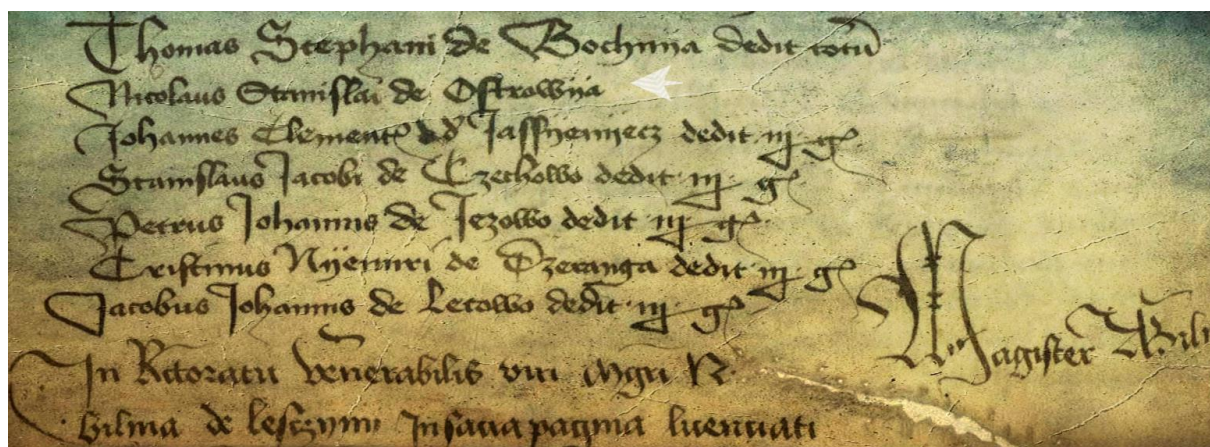 Thomas Stephani de Bochnija dedit totū
Nicolaus Stanislai de Ostrowija
Johannes Clement de Jassyenyecz dedit iij g
Stanislaus Jacobi de Czechowo dedit iij g
Petrus Johannis de Jezowo dedit iij g
Cristinus de Dzeranga dedit iij g
Jacobus Johannis de Letowo dedit iij g
In Rectoratu venerabilis viri Mgri
de lesczyni In sacra pagina licenciati
Magister